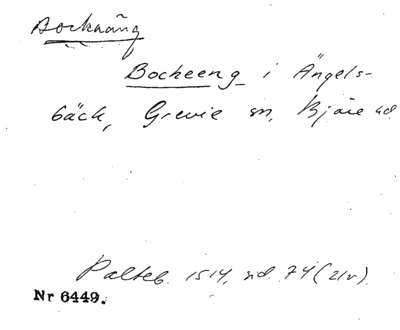 Bocknäng
Bocheeng i Ängels-
bäck, Grevie sn, Bjäre hd
Palteb. 1514, sid. 74 (21v)
Nr 6449.